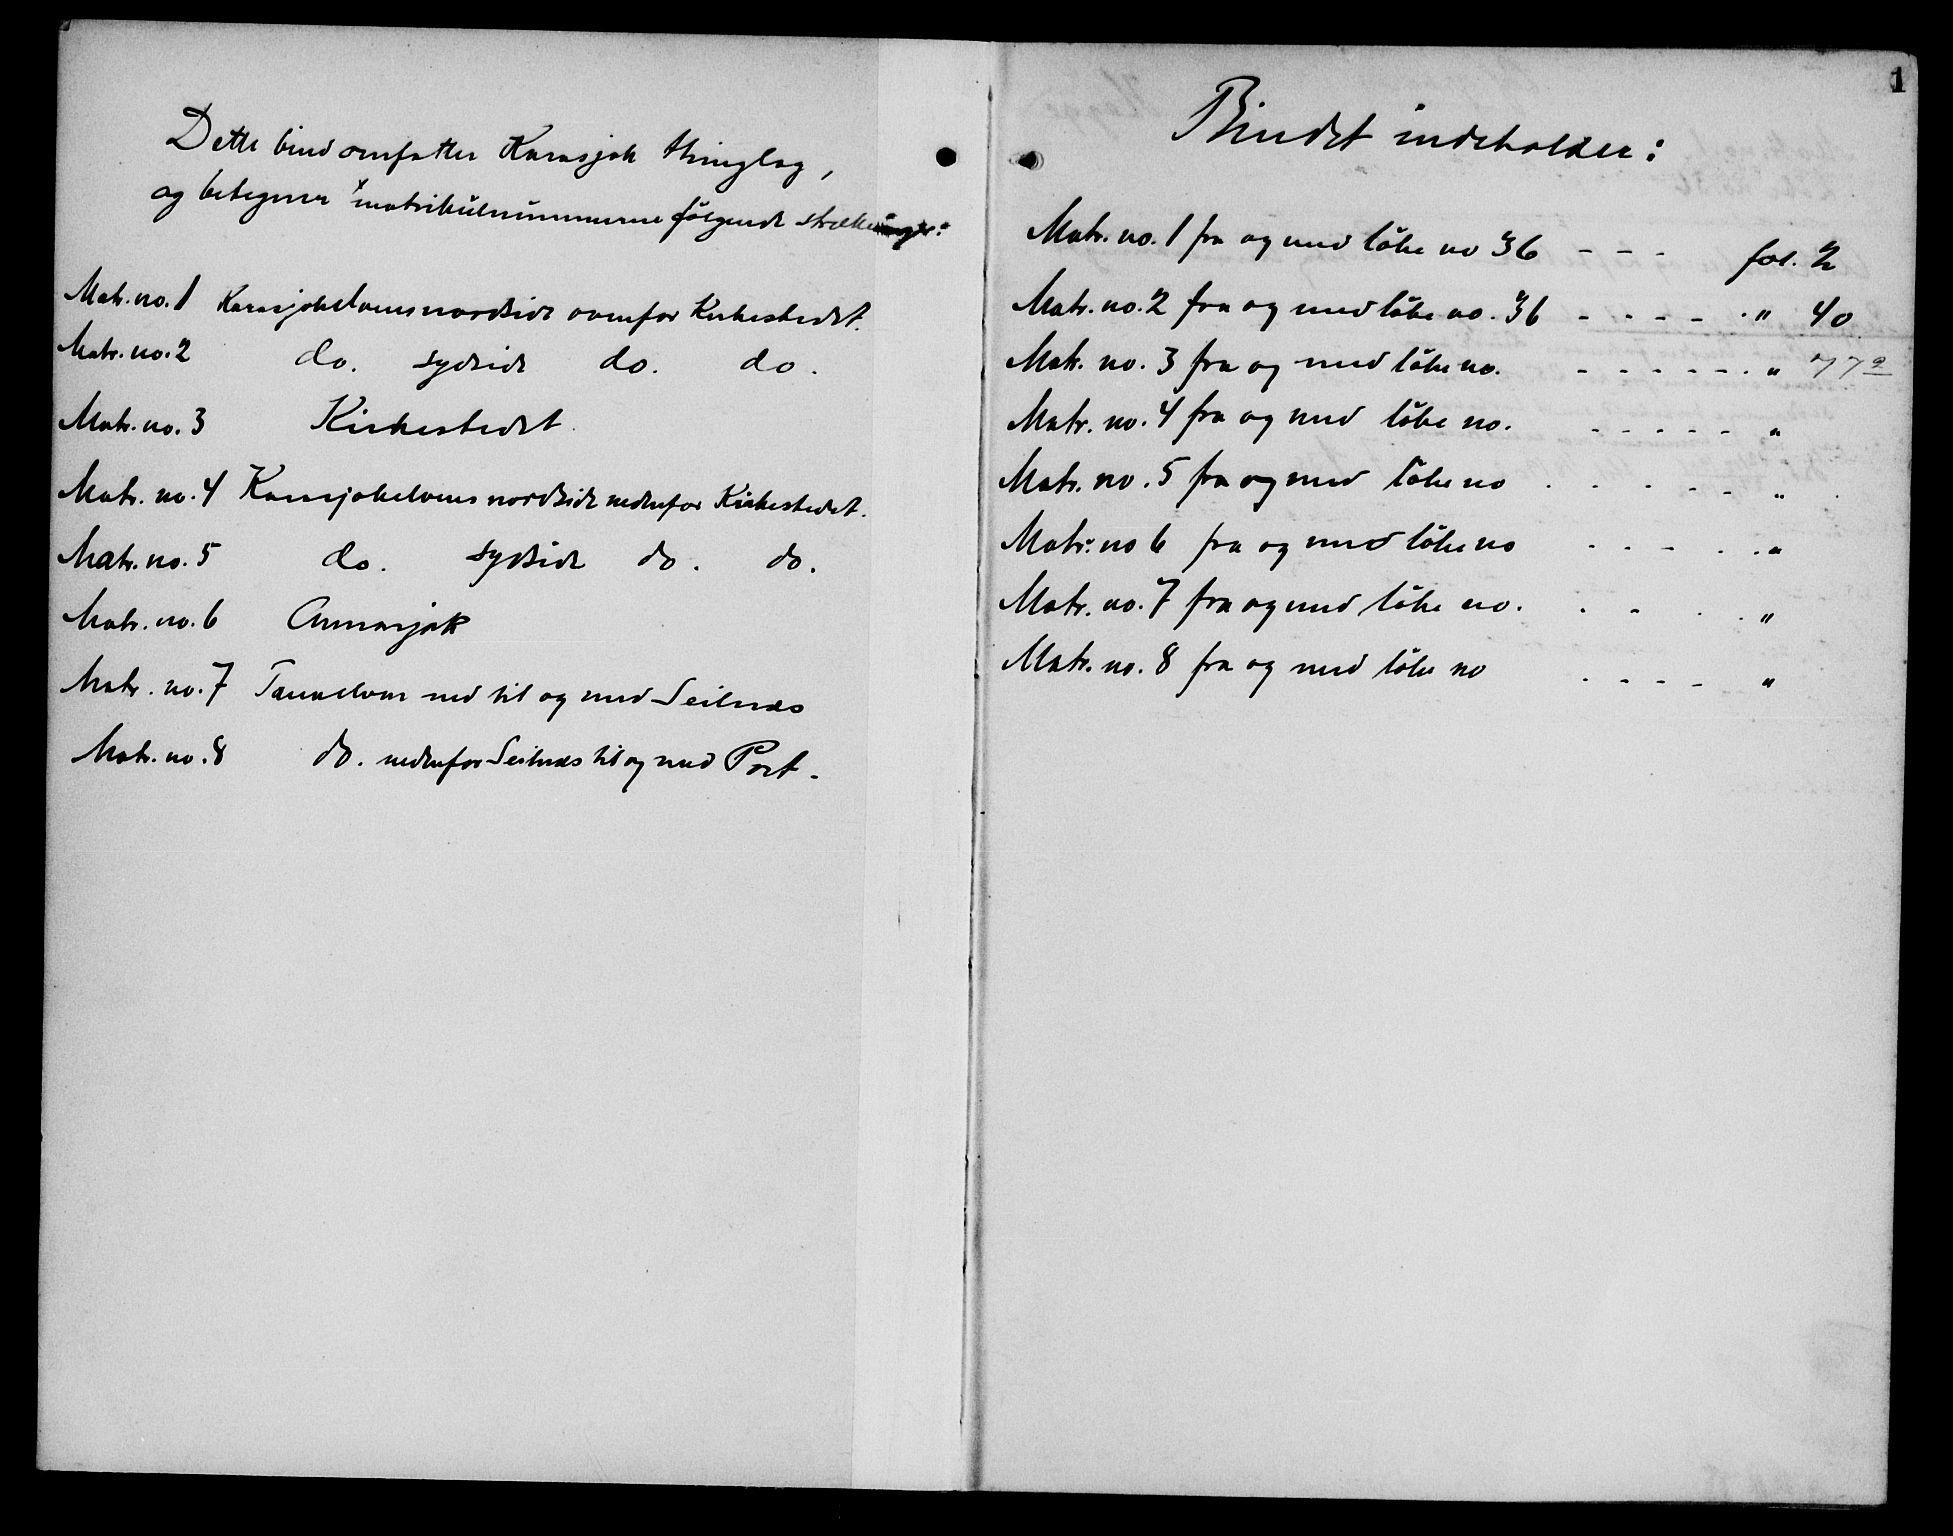 Dette bind omfatter Karasjok thinglag,
og betegner matrikulnummerne følgende strækninger:
Matr. no. 1 Karasjokelvens nordside ovenfor Kirkestedet.
Matr. no. 2 do. sydside do. do.
Matr. no. 3 Kirkestedet.
Matr. no. 4 Karasjokelvens nordside nedenfor Kirkestedet.
Matr. no. 5 do. sydside do. do.
Matr. no. 6 Annarjok
Matr. no. 7 Tanaelven ned til og med Seilnæs
Matr. no. 8 do. nedenfor Seilnæs til og med Port.
1
Bindet indeholder:
Matr. no. 1 fra og med löbe no 36 - - - fol. 2
Matr. no. 2 fra og med löbe no. 36 - - - - - " 40
Matr. no. 3 fra og med löbe no. - - - - - - " og 7 a
Matr. no. 4 fra og med löbe no. - - - - - "
Matr. no. 5 fra og med löbe no - - - - - - "
Matr. no 6 fra og med löbe no - - - - - "
Matr. no. 7 fra og med löbe no. - - - - "
Matr. no. 8 fra og med löbe no - - - - "